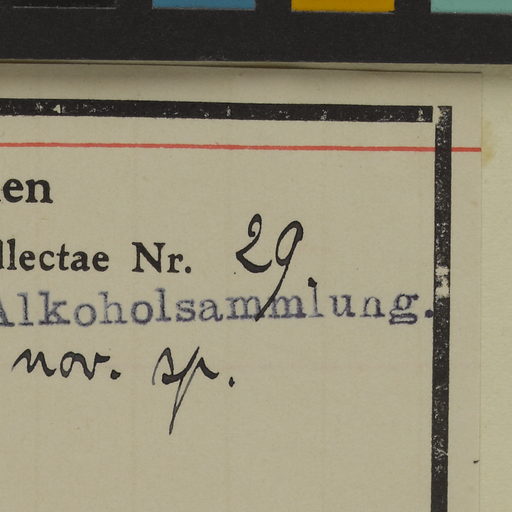 en
llectae Nr. 29.
Alkoholsammlung.
nov. sp.